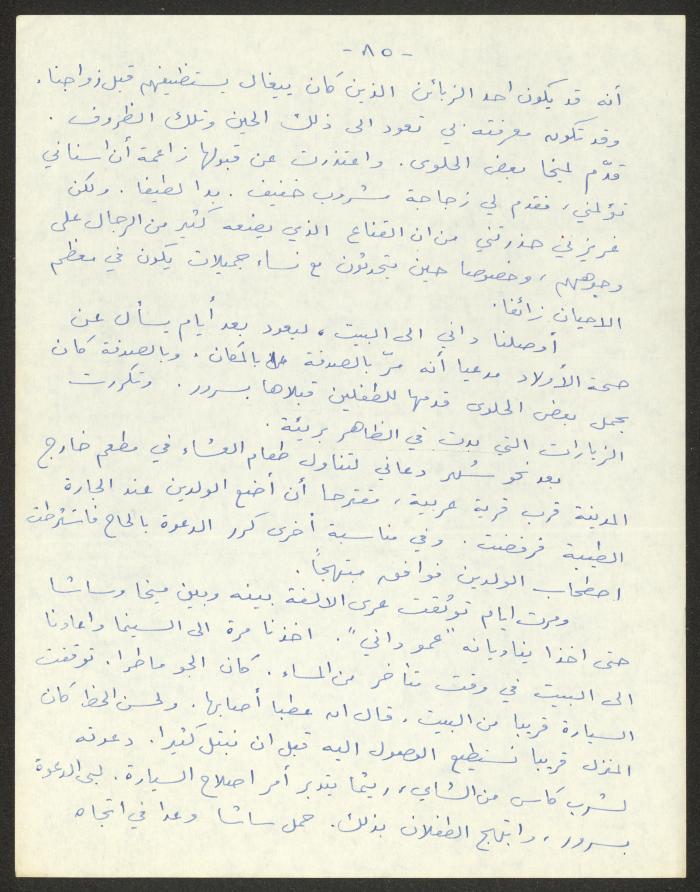 - ٨٥ -
أنه قد يكون احد الزبائن الذين كان ييغال يستضيفهم قبل زواجنا.
وقد تكون معرفته بي تعود الى ذلك الحين وتلك الظروف.
قدّم لميخا بعض الحلوى. واعتذرت عن قبولها زاعمة أن اسناني
تؤلمني، فقدم لي زجاجة مشروب خفيف. بدا لطيفا. ولكن
غريزتي حذرتني من ان القناع الذي يضعه كثير من الرجال على
وجوههم، وخصوصا حين يتحدثون مع نساء جميلات يكون في معظم
الاحيان زائفا.
أوصلنا داني الى البيت، ليعود بعد أيام يسأل عن
صحة الأولاد مدعيا أنه مرّ بالصدفة بالمكان. وبالصدفة كان
يحمل بعض الحلوى قدمها للطفلين قبلاها بسرور. وتكررت
الزيارات التي بدت في الظاهر بريئة.
بعد نحو شهر دعاني لتناول طعام العشاء في مطعم خارج
المدينة قرب قرية عربية، مقترحا أن أضع الولدين عند الجارة
الطيبة فرفضت. وفي مناسبة أخرى كرر الدعوة بالحاح فاشترطت
اصطحاب الولدين فوافق مبتهجاً.
ومرت ايام توثقت عرى الالفة بينه وبين ميخا وساشا
حتى اخذا يناديانه "عمو داني". اخذنا مرة الى السينما واعادنا
الى البيت في وقت متأخر من المساء. كان الجو ماطرا. توقفت
السيارة قريبا من البيت. قال ان عطبا أصابها. ولحسن الحظ كان
المنزل قريبا نستطيع الوصول اليه قبل ان نبتل كثيرا. دعوته
لشرب كاس من الشاي، ريثما يتدبر أمر اصلاح السيارة. لبى الدعوة
بسرور، وابتهج الطفلان بذلك. حمل ساشا وعدا في اتجاه